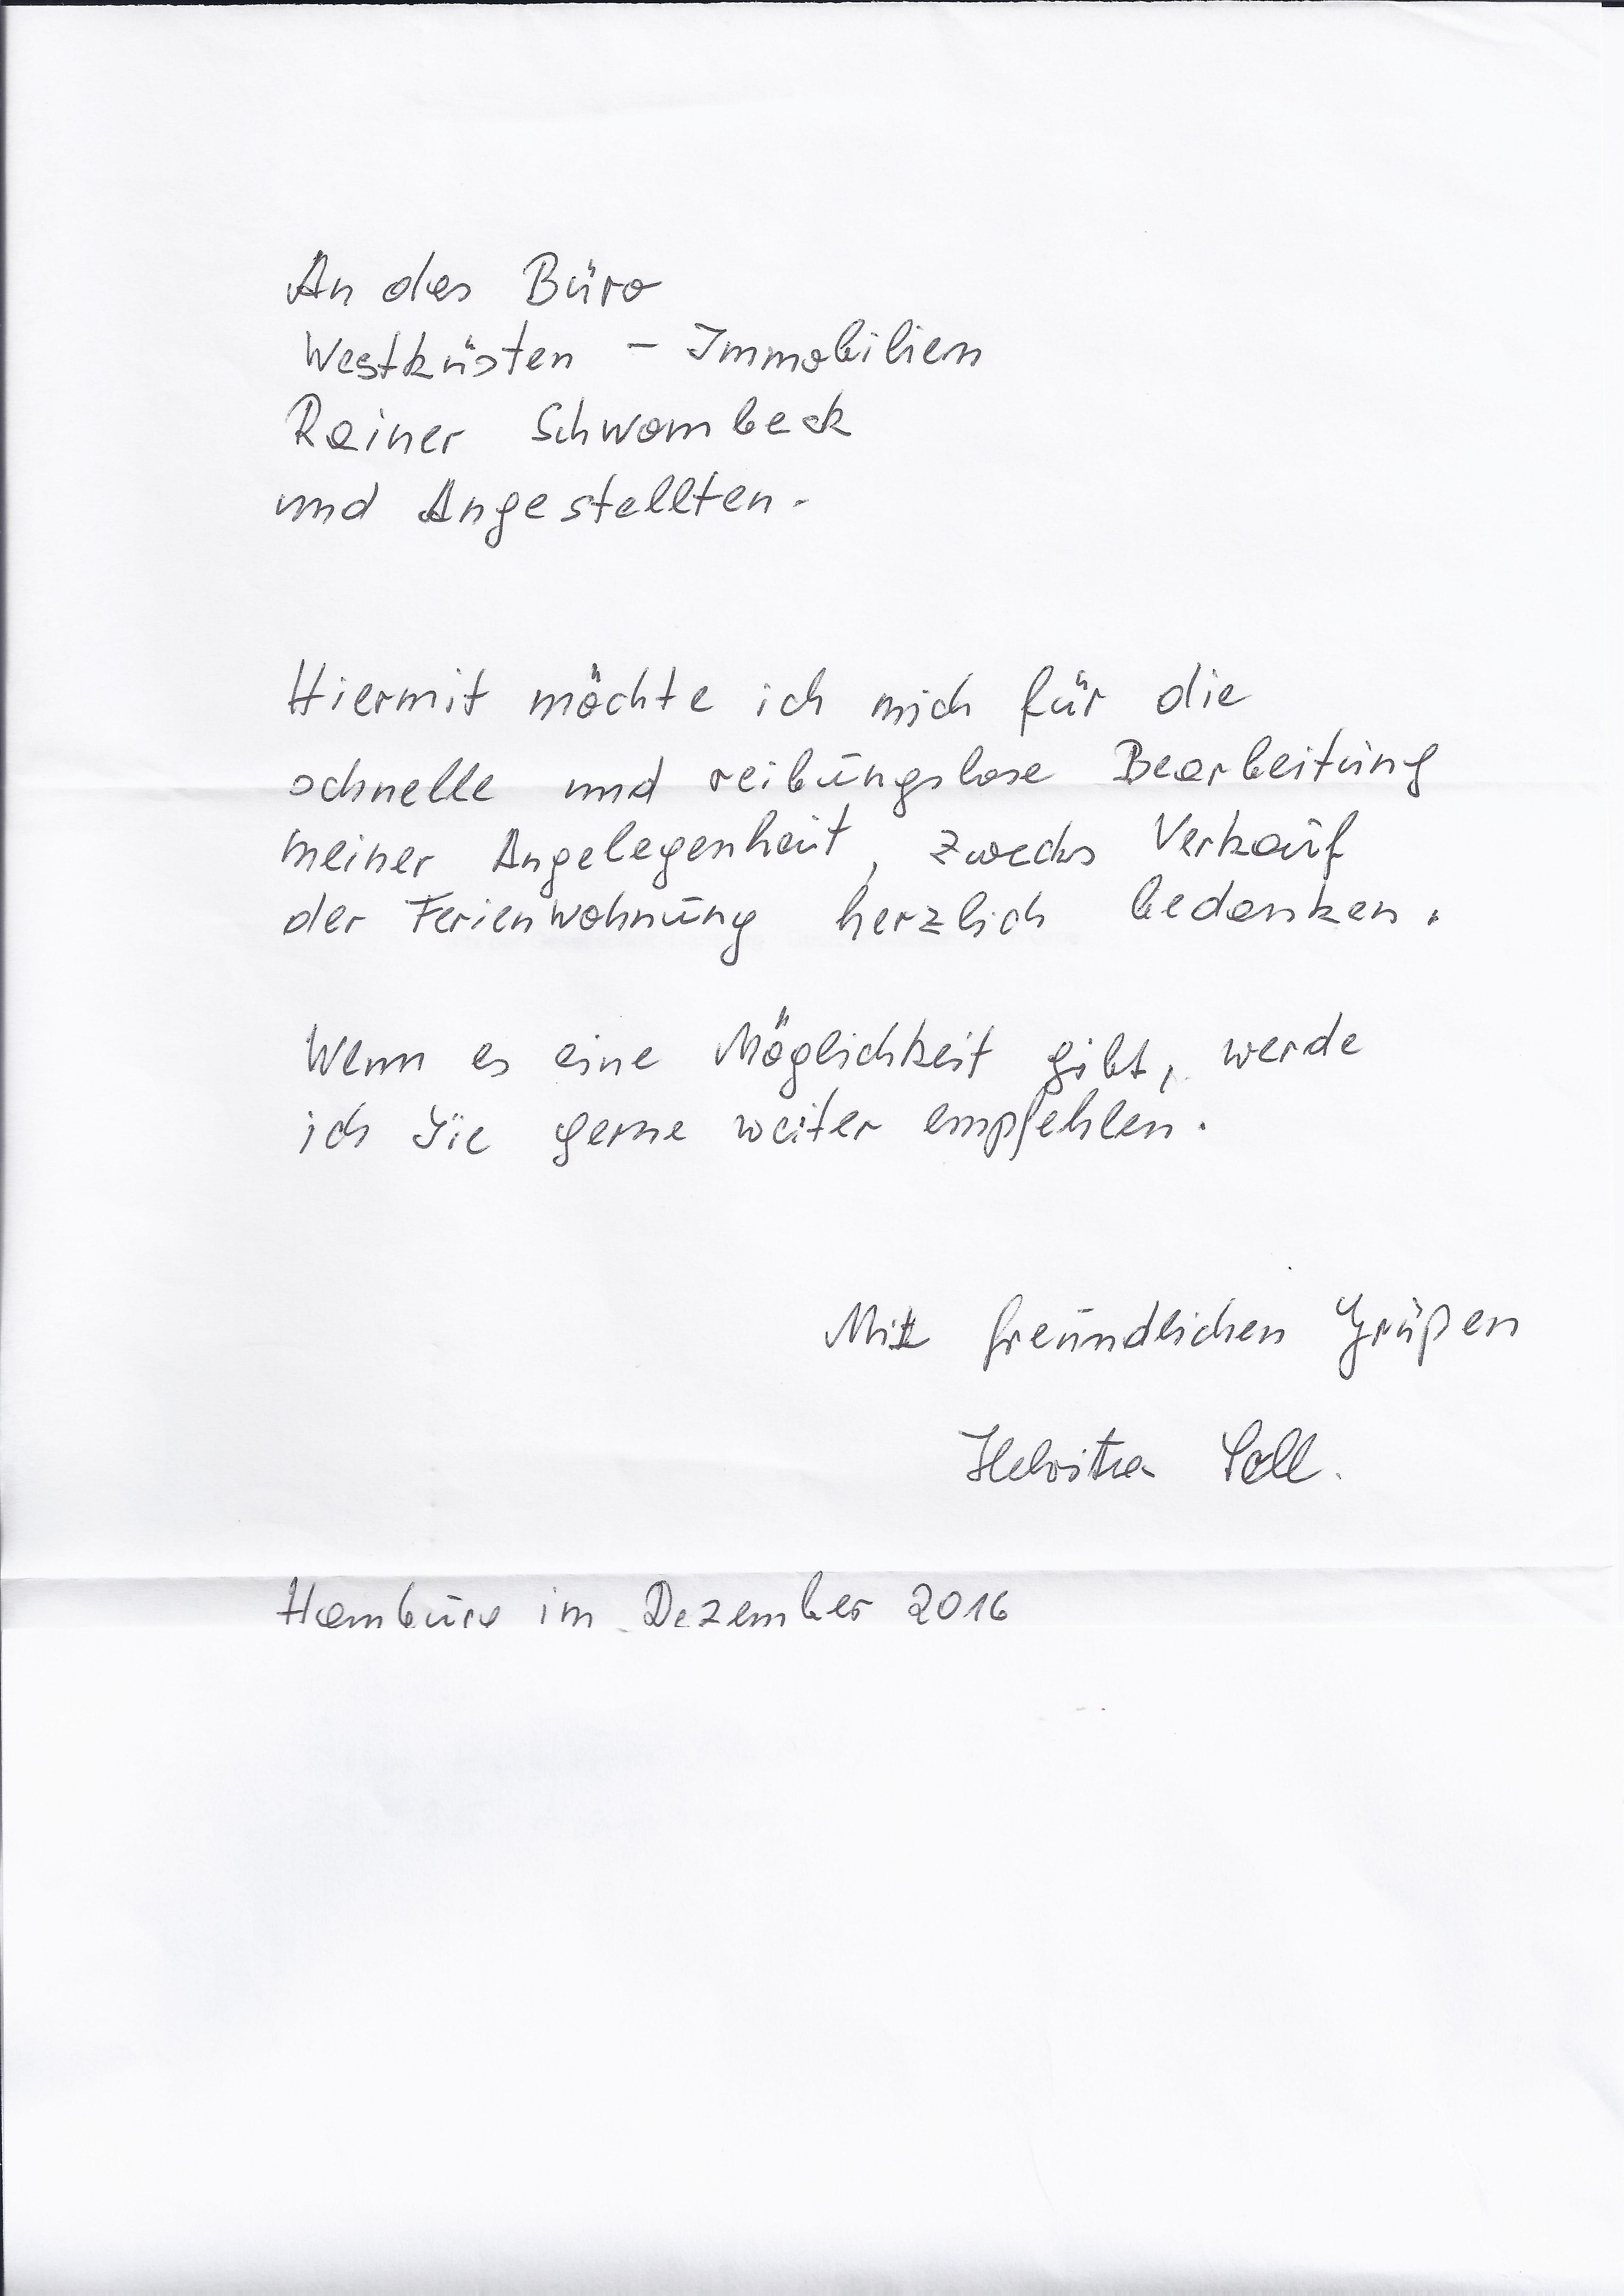 An das Büro
Westküsten - Immobilien
Rainer Schwambeck
und Angestellten.
Hiermit möchte ich mich für die
schnelle und reibungslose Bearbeitung
meiner Angelegenheit, zwecks Verkauf
der Ferienwohnung herzlich bedanken.
Wenn es eine Möglichkeit gibt, werde
ich Sie gerne weiter empfehlen.
Mit freundlichen Grüßen
Hamburg im Dezember 2016